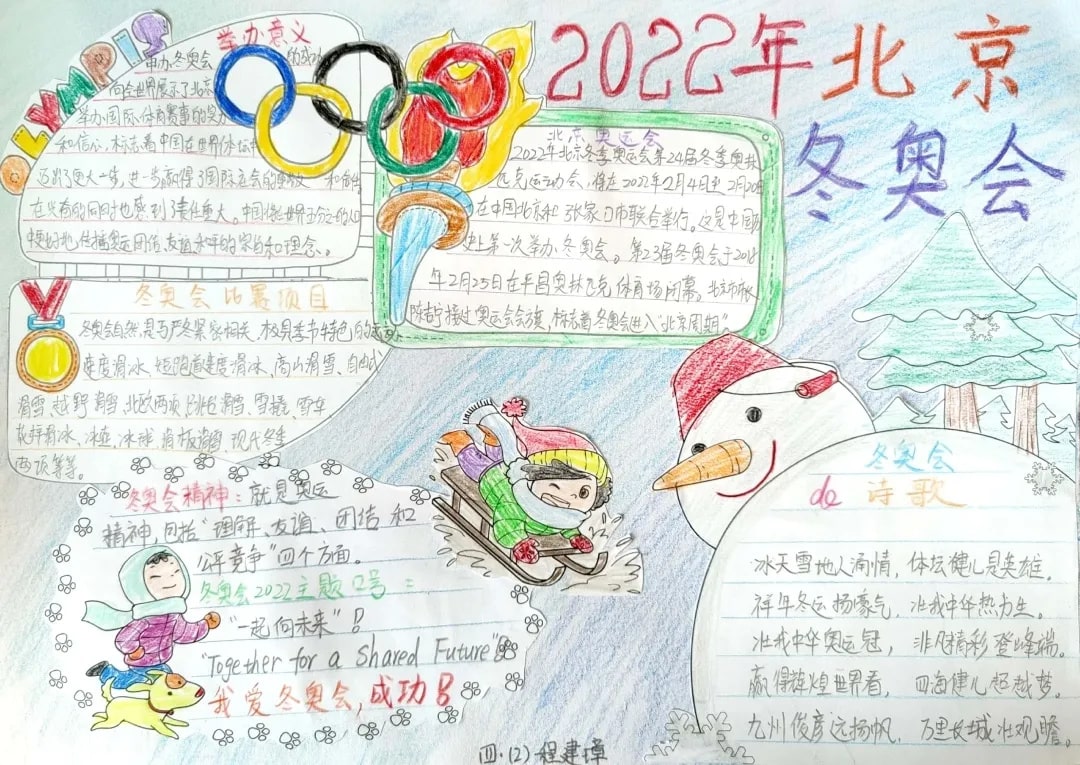 2022年北京
冬奥会
OLYMPIS
举办意义
申办冬奥会的成功
向全世界展示了北京
举办国际体育赛事的实力
和信心,标志着中国在世界体坛中
迈出了更大一步,进一步赢得了国际运会的尊敬 和
在兴奋的同时也感到责任重大。中国能世界
更好地传播奥运团结、友谊、和平的 和理念。
北京奥运会
2022年北京冬季奥运会第24届冬季奥林
匹克运动会,将在2022年2月4日到2月20日
在中国北京和张家口市联合举行。这是中国历
史上第一次举办冬奥会。第23届冬奥会于2018
年2月25日在平昌奥林匹克体育场闭幕。北京市市长
陈吉宁接过奥运会会旗,标志着冬奥会进入“北京周期”。
冬奥会比赛项目
冬奥会自然是与严冬紧密相关、极具季节特色的
速度滑冰、短跑道速度滑冰、高山滑雪、自由式
滑雪、越野滑雪、北欧两项、跳台滑雪、雪橇、雪车
花样滑冰、冰壶、冰球、滑板滑雪、现代冬季
两项等等。
冬奥会精神:就是奥运
精神,包括“理解、友谊、团结和
公平竞争”四个方面。
冬奥会2022主题口号:
“一起向未来”!
“Together for a Shared Future”
我爱冬奥会,成功!
冬奥会
de 诗歌
冰天雪地人涌情,体坛健儿是英雄。
祥年冬运扬豪气,壮我中华热力生。
壮我中华奥运冠,非凡精彩登峰端。
赢得辉煌世界看,四海健儿超越梦。
九州俊彦远扬帆,万里长城壮观瞻。
四·(2) 程建璋